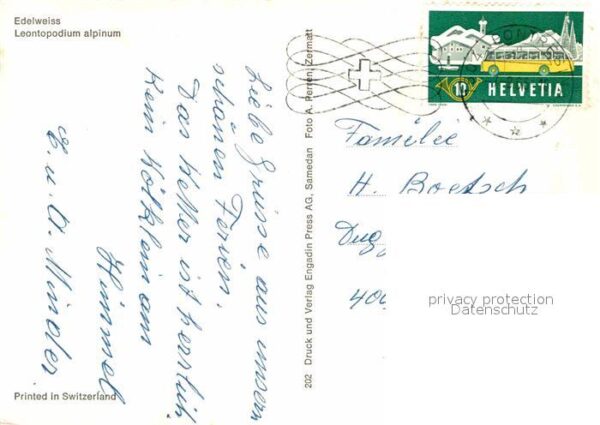 Edelweiss
Leontopodium alpinum
Liebe Grüsse aus unsern
schönen Ferien.
Das Wetter ist herrlich
kein Wölklein am
Himmel
E. u. O. Minder
Printed in Switzerland
202 Druck und Verlag Engadin Press AG, Samedan Foto A. Perren, Zermatt
12 HELVETIA
Familie
H. Boetsch
Dug
400
privacy protection
Datenschutz